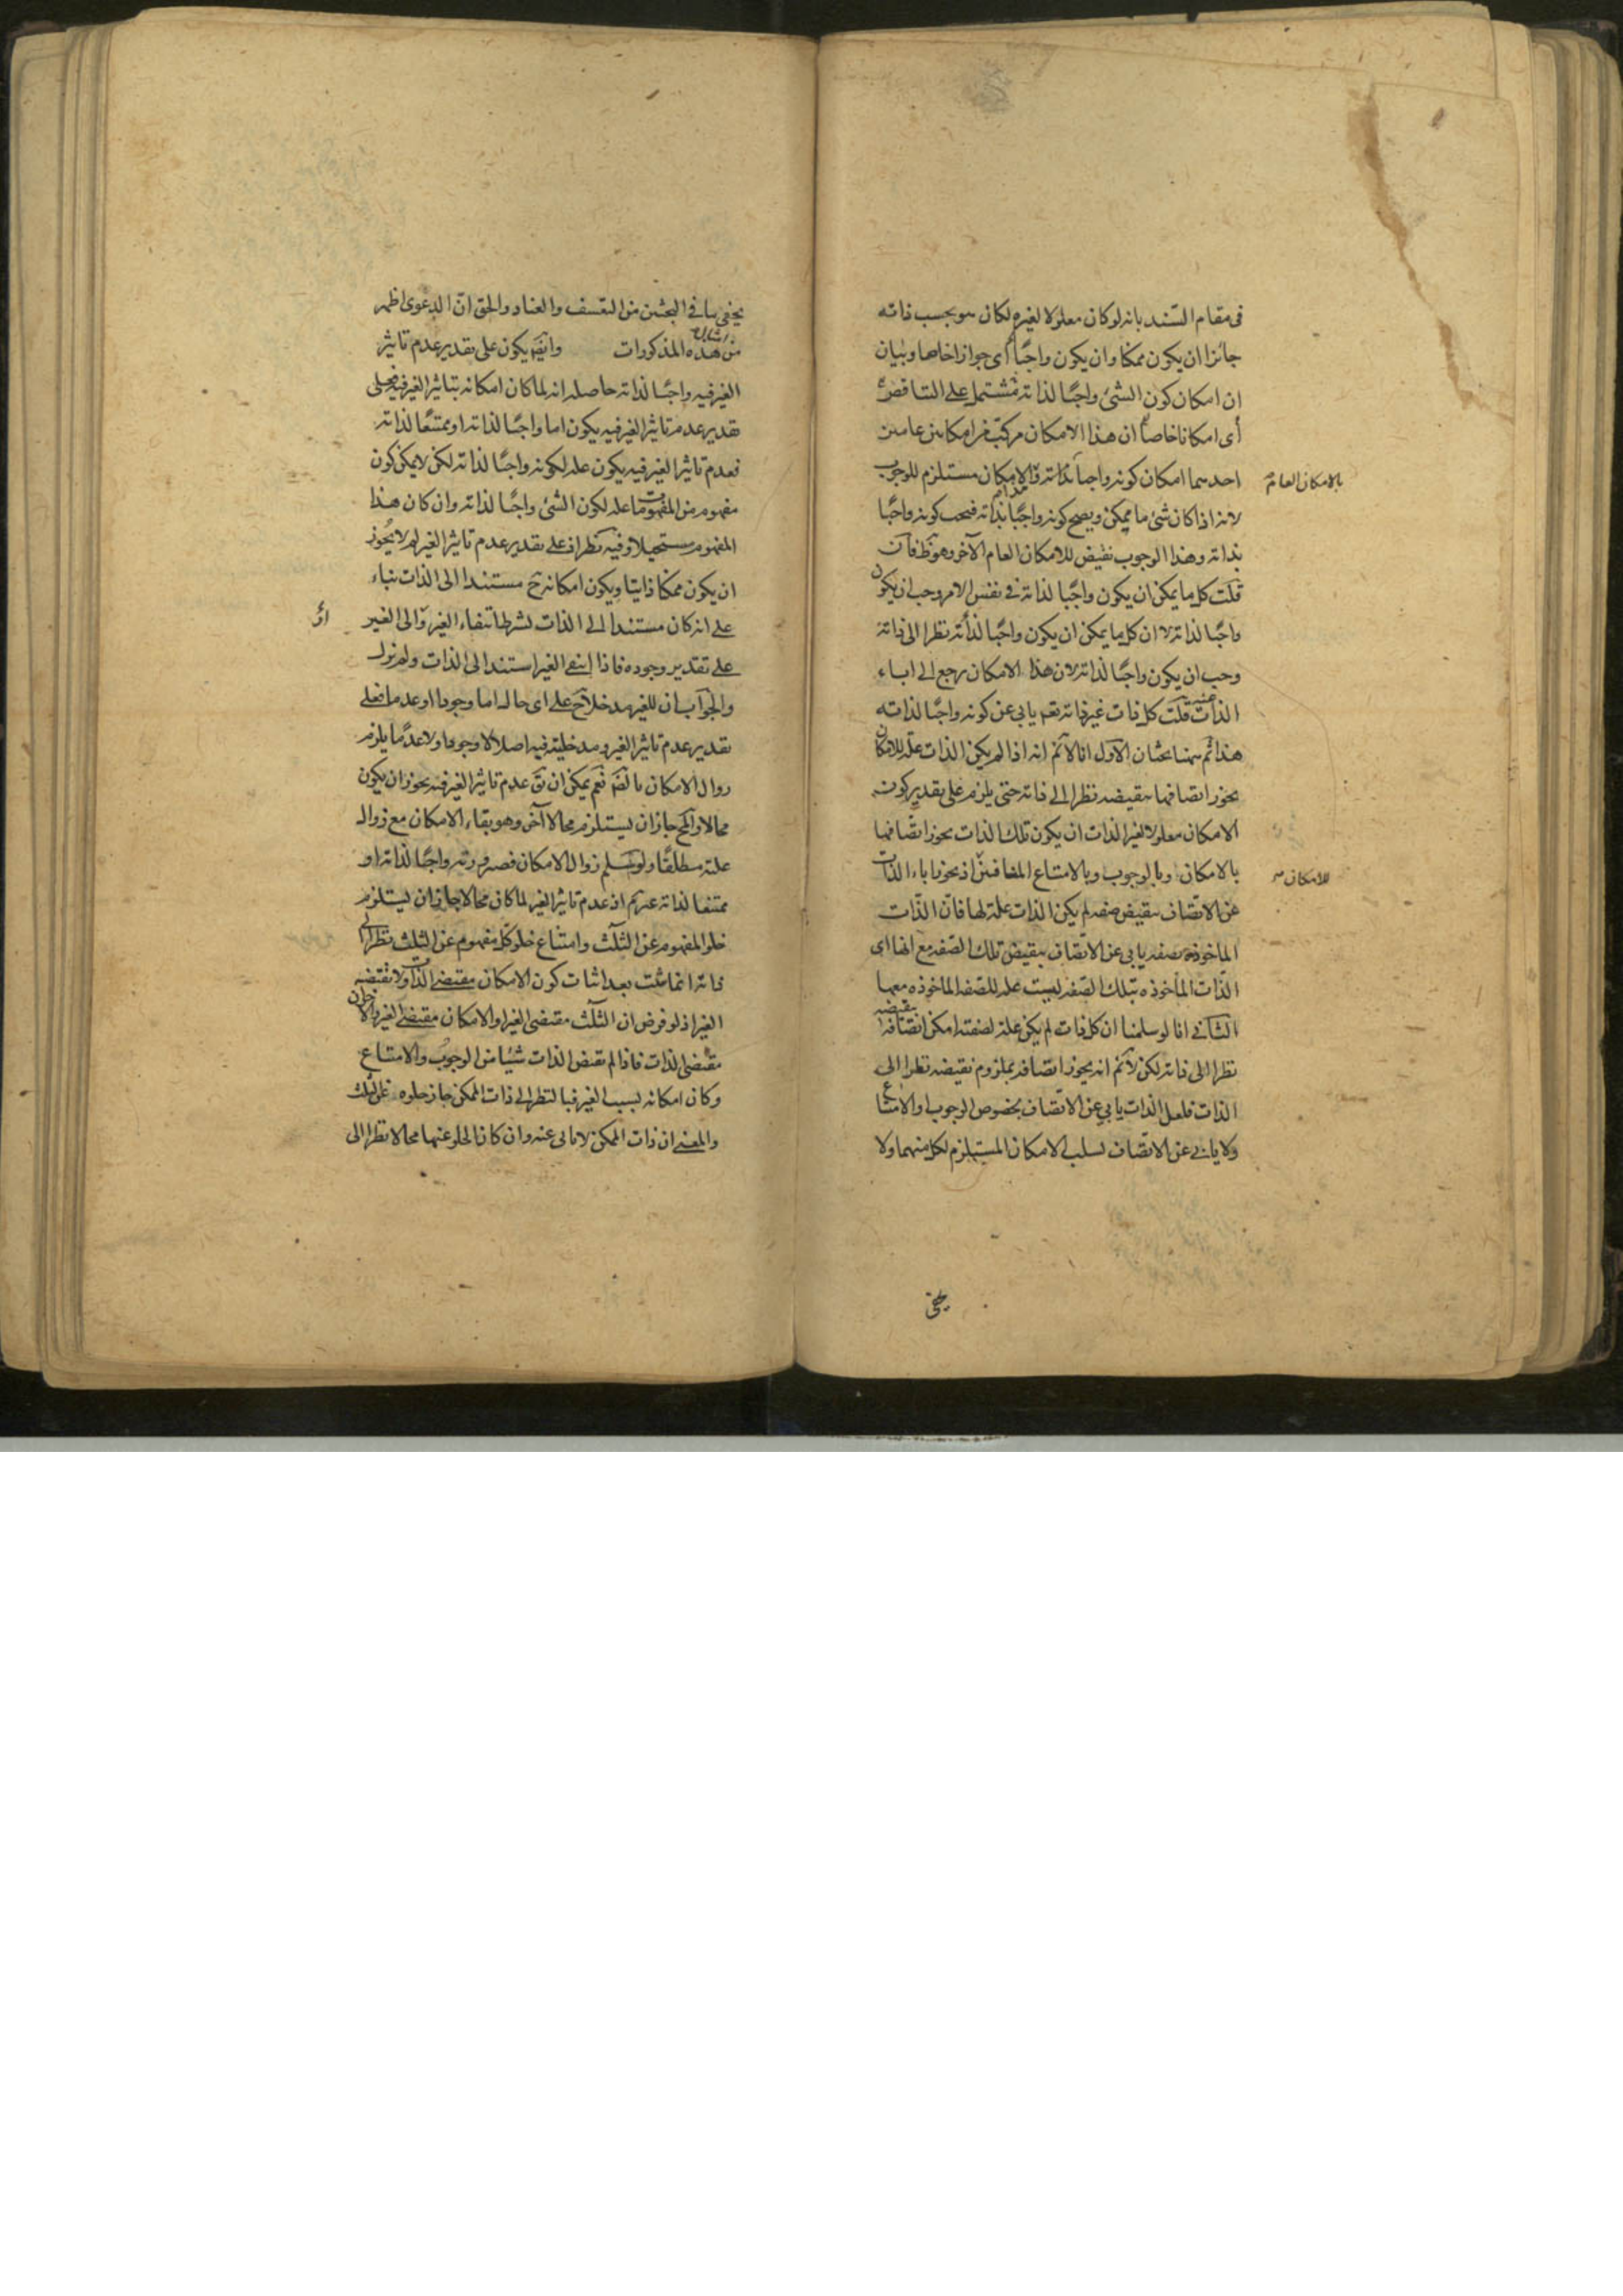 فى مقام السند بانه لو كان معلولا لغيره لكان هو بحسب ذاته
جائزا ان يكون ممكنا وان يكون واجبًا اى جوازا خاصا وبيان
ان امكان كون الشئ واجبًا لذاته مشتمل على التناقض
أى امكانا خاصا ان هذا الامكان مركب من امكانين عامين
احدهما امكان كونه واجبا بذاته والامكان مستلزم للوجوب
بالامكان العام
لانه اذا كان شئ ما ممكن ويصح كونه واجبًا بذاته فيجب كونه واجبًا
بذاته وهذا الوجوب نقيض للامكان العام الآخر وهو ظ فان
قلت كل ما يمكن ان يكون واجبًا لذاته فى نفس الامر وجب ان يكون
واجبًا لذاته لا ان كل ما يمكن ان يكون واجبًا لذاته نظرا الى ذاته
وجب ان يكون واجبًا لذاته لان هذا الامكان يرجع الى اباء
الذات عنه قلت كل ذات غير ذاته نعم يابى عن كونه واجبًا لذاته
هذا ثم ههنا بحثان الاول انا لا نم انه اذا لم يكن الذات علة للامكان
يجوز اتصافها بنقيضه نظرا الى ذاته حتى يلزم على تقدير كون
الامكان معلولا لغير الذات ان يكون تلك الذات يجوز اتصافها
بالامكان وبالوجوب وبالامتناع المنافيين اذ يجوز اباء الذات
للامكان
عن الاتصاف بنقيض صفة لم يكن الذات علة لها فان الذات
الماخوذة بصفة يابى عن الاتصاف بنقيض تلك الصفة مع انها اى
الذات الماخوذه بتلك الصفة ليست علة للصفة الماخوذه معها
الثانى انا لو سلمنا ان كل ذات لم يكن علة لصفة امكن اتصافه بنقيضه
نظرا الى ذاته لكن لا نم انه يجوز اتصافه بملزوم نقيضه نظرا الى
الذات فلعل الذات يابى عن الاتصاف بخصوص الوجوب او الامتناع
ولا يابى عن الاتصاف لسلب الامكان المستلزم لكل منهما ولا
يخفى
يخفى ما فى البحثين من التعسف والعناد والحق ان الدعوى اظهر
من امثال هذه المذكورات وايضا يكون على تقدير عدم تاثير
الغير فيه واجبًا لذاته حاصله انه لما كان امكانه بتاثير الغير فيه فعلى
تقدير عدم تاثير الغير فيه يكون اما واجبًا لذاته او ممتنعًا لذاته
فعدم تاثير الغير فيه يكون علة لكونه واجبًا لذاته لكن لا يمكن كون
مفهوم من المفهومات علة لكون الشئ واجبًا لذاته وان كان هذا
المفهوم مستحيلا وفيه نظر اذ على تقدير عدم تاثير الغير لم لا يجوز
ان يكون ممكنا ذاتيا ويكون امكانه ح مستندا الى الذات بناء
على انه كان مستندا الى الذات لشرط انتفاء الغير والى الغير
على تقدير وجوده فاذا انتفى الغير استند الى الذات ولم يزل
والجواب ان للغير مدخلا ح على اى حاله اما وجودا او عدما فعلى
تقدير عدم تاثير الغير ومدخليته فيه اصلا لا وجودا ولا عدمًا يلزم
زوال الامكان بالضرورة نعم يمكن ان يق عدم تاثير الغير فيه يجوز ان يكون
محالا والمح جاز ان يستلزم محالا آخر وهو بقاء الامكان مع زوال
علته مطلقًا ولو سلم زوال الامكان فصيرورته واجبًا لذاته او
ممتنعا لذاته غير تم اذ عدم تاثير الغير لما كان محالا جاز ان يستلزم
خلو المفهوم عن الثلث وامتناع خلو كل مفهوم عن الثلث نظرا الى
ذاته انما ثبت بعد اثبات كون الامكان مقتضى الذات ولا تقتضيه
الغير اذ لو فرض ان الثلث مقتضى الغير او الامكان مقتضى الغير والاخران
مقتضى الذات فاذا لم تقتض الذات شيئا من الوجوب والامتناع
وكان امكانه بسبب الغير فبالنظر الى ذات الممكن جاز خلوه عن الثلث
والمعنى ان ذات الممكن لا تابى عنه وان كان الخلو عنها محالا نظرا الى